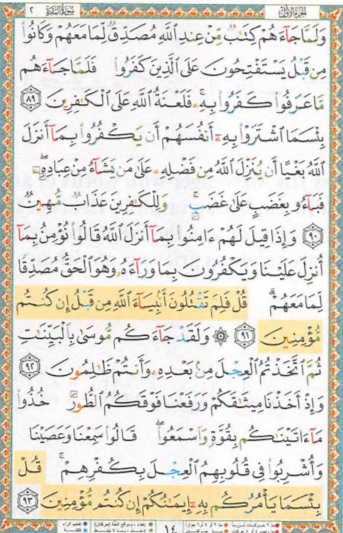 الجزء الأول سورة البقرة ٢
وَلَمَّا جَآءَهُمْ كِتَٰبٌ مِّنْ عِندِ ٱللَّهِ مُصَدِّقٌ لِّمَا مَعَهُمْ وَكَانُوا۟
مِن قَبْلُ يَسْتَفْتِحُونَ عَلَى ٱلَّذِينَ كَفَرُوا۟ فَلَمَّا جَآءَهُم
مَّا عَرَفُوا۟ كَفَرُوا۟ بِهِۦ ۚ فَلَعْنَةُ ٱللَّهِ عَلَى ٱلْكَٰفِرِينَ ٨٩
بِئْسَمَا ٱشْتَرَوْا۟ بِهِۦٓ أَنفُسَهُمْ أَن يَكْفُرُوا۟ بِمَآ أَنزَلَ
ٱللَّهُ بَغْيًا أَن يُنَزِّلَ ٱللَّهُ مِن فَضْلِهِۦ عَلَىٰ مَن يَشَآءُ مِنْ عِبَادِهِۦ ۖ
فَبَآءُو بِغَضَبٍ عَلَىٰ غَضَبٍ ۚ وَلِلْكَٰفِرِينَ عَذَابٌ مُّهِينٌ
٩٠ وَإِذَا قِيلَ لَهُمْ ءَامِنُوا۟ بِمَآ أَنزَلَ ٱللَّهُ قَالُوا۟ نُؤْمِنُ بِمَآ
أُنزِلَ عَلَيْنَا وَيَكْفُرُونَ بِمَا وَرَآءَهُۥ وَهُوَ ٱلْحَقُّ مُصَدِّقًا
لِّمَا مَعَهُمْ ۗ قُلْ فَلِمَ تَقْتُلُونَ أَنۢبِيَآءَ ٱللَّهِ مِن قَبْلُ إِن كُنتُم
مُّؤْمِنِينَ ٩١ ۞ وَلَقَدْ جَآءَكُم مُّوسَىٰ بِٱلْبَيِّنَٰتِ
ثُمَّ ٱتَّخَذْتُمُ ٱلْعِجْلَ مِنۢ بَعْدِهِۦ وَأَنتُمْ ظَٰلِمُونَ ٩٢
وَإِذْ أَخَذْنَا مِيثَٰقَكُمْ وَرَفَعْنَا فَوْقَكُمُ ٱلطُّورَ خُذُوا۟
مَآ ءَاتَيْنَٰكُم بِقُوَّةٍ وَٱسْمَعُوا۟ ۖ قَالُوا۟ سَمِعْنَا وَعَصَيْنَا
وَأُشْرِبُوا۟ فِى قُلُوبِهِمُ ٱلْعِجْلَ بِكُفْرِهِمْ ۚ قُلْ
بِئْسَمَا يَأْمُرُكُم بِهِۦٓ إِيمَٰنُكُمْ إِن كُنتُم مُّؤْمِنِينَ ٩٣
١٤